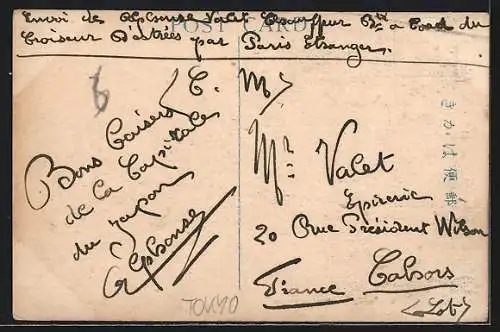 Envoi de Alphonse Valet Chauffeur Bté a bord du
Croiseur D'Estrées par Paris Etranger.
POST CARD
T. M
Bons Baisers
de la Capitale
du Japon
Alphonse
Mr Valet
Epicerie
20 Rue Président Wilson
Cahors
France
(Lot)
きかは便郵
TOKYO